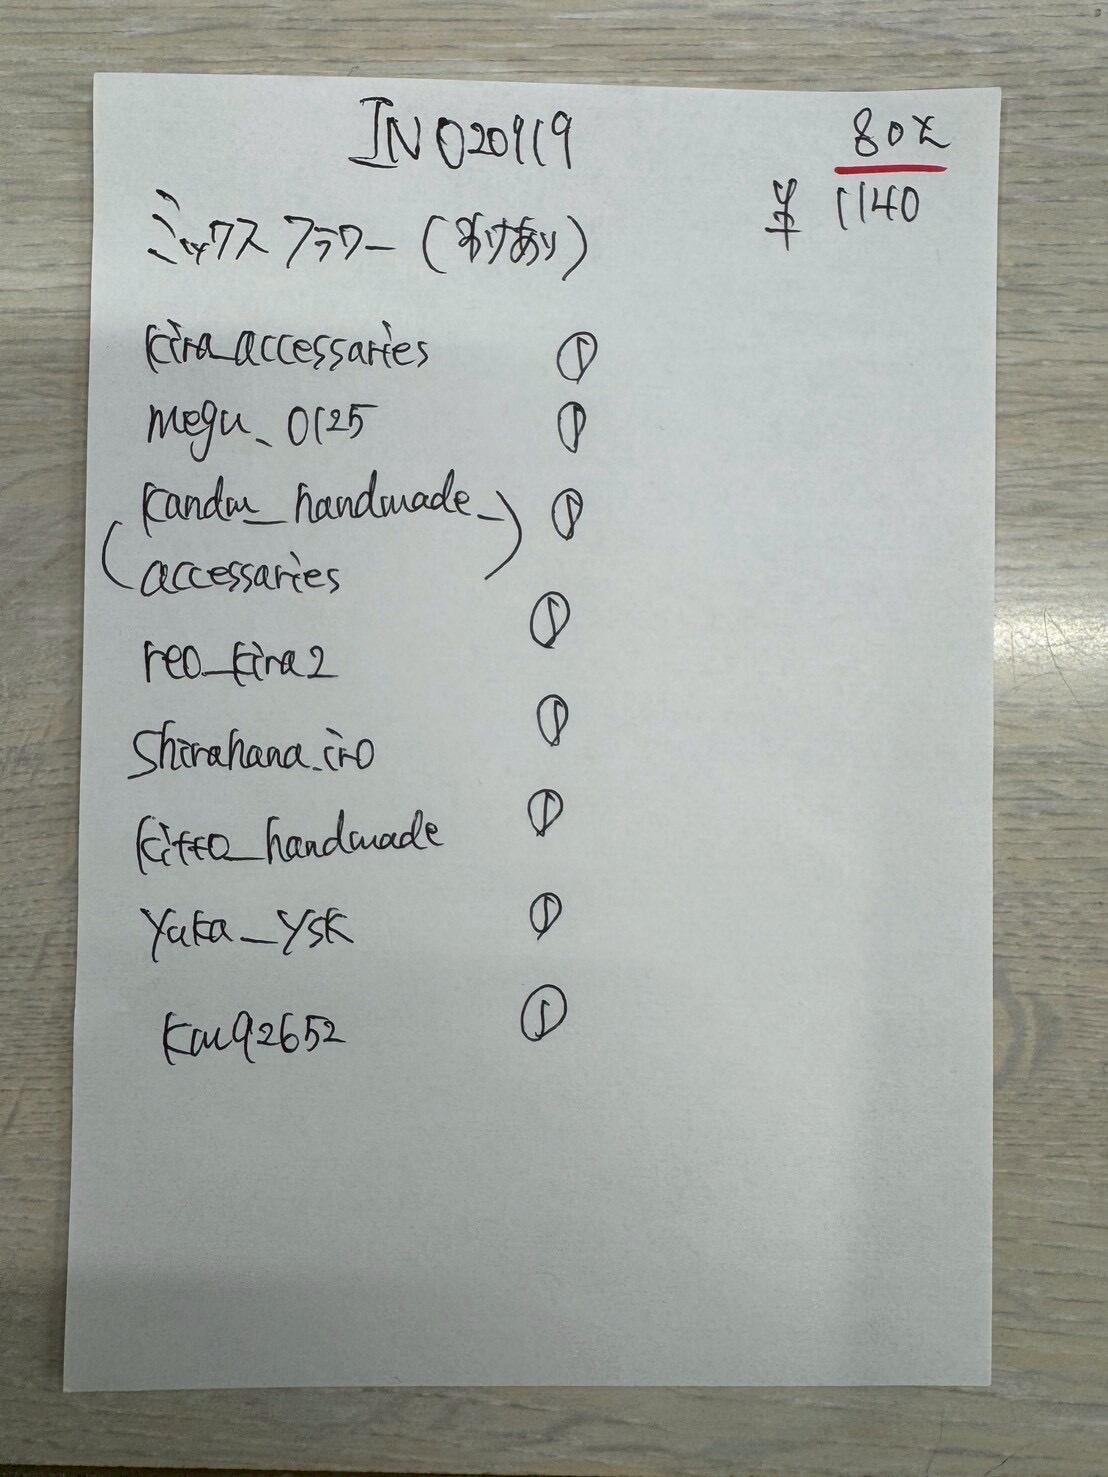 INO20919 80%
¥ 1140
ミックスフラワー(わけあり)
kira_accessaries ①
megu_0125 ①
(kandm_handmade_ ①
accessaries)
reo_kira2 ①
Shirahana.iro ①
kitto_handmade ①
Yuka_ysk ①
①